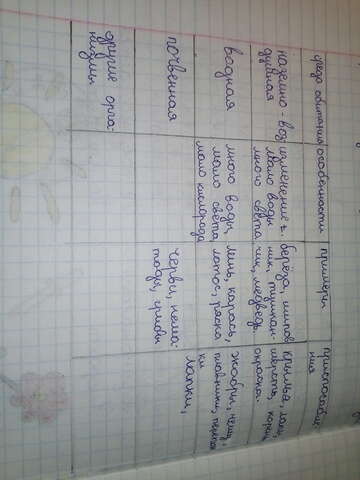 среда обитания
особенности
примеры
приспособле-
ния
наземно-воз-
душная
изменение t.
мало воды
много света
берёза, шипов-
ник, тушкан-
чик, медведь
крылья, лапы,
шерсть, корни,
окраска.
водная
много воды
мало света,
мало кислорода
линь, карась,
лотос, ряска
жабры, чешуя,
плавники,
ки
почвенная
черви, нема-
тоды, грибы
лапки,
другие орга-
низмы.